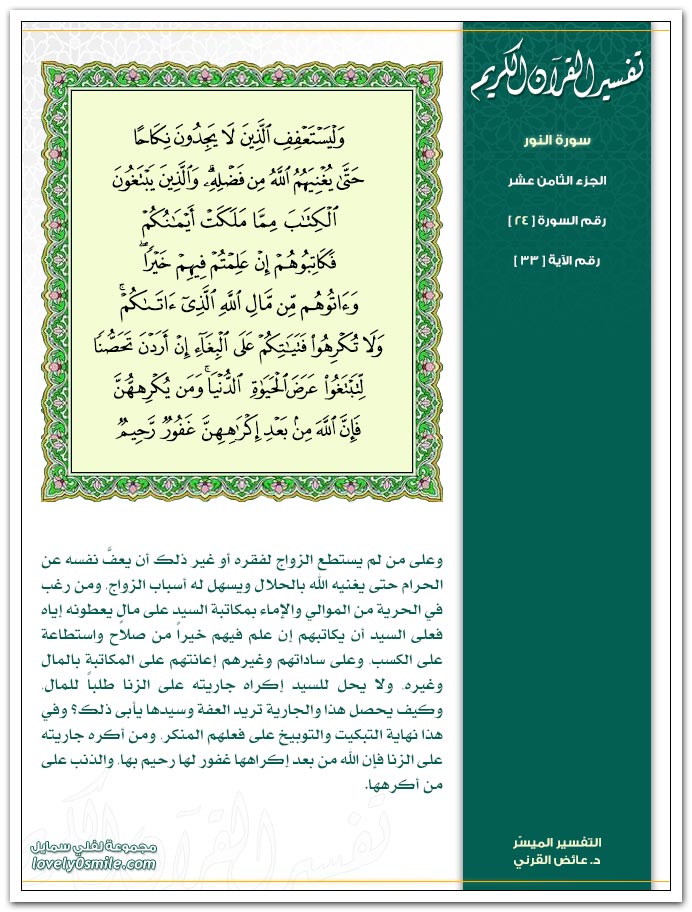 تفسير القرآن الكريم
سورة النور
الجزء الثامن عشر
رقم السورة [ ٢٤ ]
رقم الآية [ ٣٣ ]
وَلْيَسْتَعْفِفِ ٱلَّذِينَ لَا يَجِدُونَ نِكَاحًا
حَتَّىٰ يُغْنِيَهُمُ ٱللَّهُ مِن فَضْلِهِۦۗ وَٱلَّذِينَ يَبْتَغُونَ
ٱلْكِتَٰبَ مِمَّا مَلَكَتْ أَيْمَٰنُكُمْ
فَكَاتِبُوهُمْ إِنْ عَلِمْتُمْ فِيهِمْ خَيْرًاۖ
وَءَاتُوهُم مِّن مَّالِ ٱللَّهِ ٱلَّذِىٓ ءَاتَىٰكُمْۚ
وَلَا تُكْرِهُوا۟ فَتَيَٰتِكُمْ عَلَى ٱلْبِغَآءِ إِنْ أَرَدْنَ تَحَصُّنًا
لِّتَبْتَغُوا۟ عَرَضَ ٱلْحَيَوٰةِ ٱلدُّنْيَاۚ وَمَن يُكْرِههُّنَّ
فَإِنَّ ٱللَّهَ مِنۢ بَعْدِ إِكْرَٰهِهِنَّ غَفُورٌ رَّحِيمٌ
وعلى من لم يستطع الزواج لفقره أو غير ذلك أن يعفَّ نفسه عن
الحرام حتى يغنيه الله بالحلال ويسهل له أسباب الزواج، ومن رغب
في الحرية من الموالي والإماء بمكاتبة السيد على مالٍ يعطونه إياه
فعلى السيد أن يكاتبهم إن علم فيهم خيراً من صلاح واستطاعة
على الكسب، وعلى ساداتهم وغيرهم إعانتهم على المكاتبة بالمال
وغيره، ولا يحل للسيد إكراه جاريته على الزنا طلباً للمال،
وكيف يحصل هذا والجارية تريد العفة وسيدها يأبى ذلك؟ وفي
هذا نهاية التبكيت والتوبيخ على فعلهم المنكر، ومن أكره جاريته
على الزنا فإن الله من بعد إكراهها غفور لها رحيم بها، والذنب على
من أكرهها.
التفسير الميسّر
د. عائض القرني
مجموعة لفلي سمايل
lovely0smile.com
تفسير القرآن الكريم